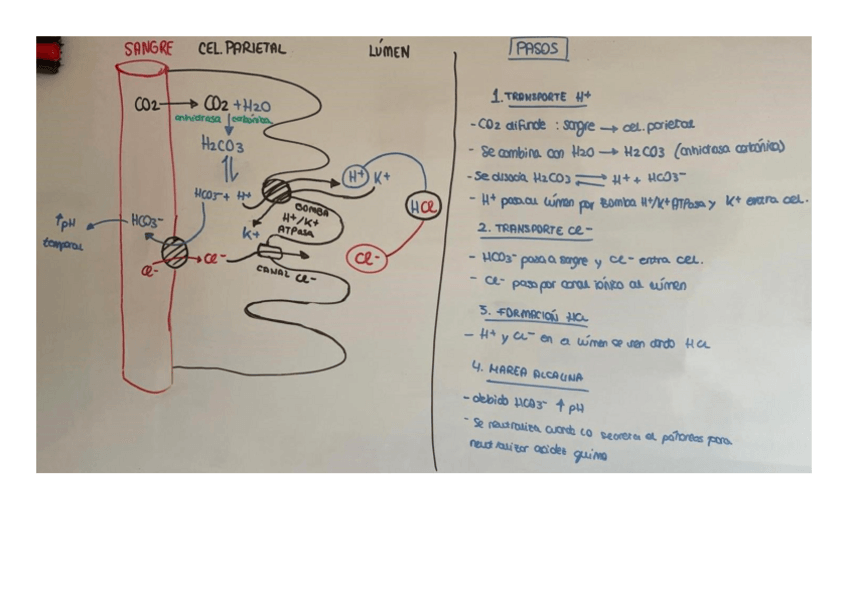 SANGRE CEL. PARIETAL LÚMEN
CO2 → CO2 + H2O
anhidrasa carbónica
H2CO3
HCO3- + H+
H+ K+
BOMBA
H+/K+
ATPasa
K+
HCl
↑pH
temporal
HCO3-
Cl- → Cl-
CANAL Cl-
Cl-
PASOS
1. TRANSPORTE H+
- CO2 difunde : sangre → cel. parietal
- Se combina con H2O → H2CO3 (anhidrasa carbónica)
- Se disocia H2CO3 ⇌ H+ + HCO3-
- H+ pasa al lúmen por Bomba H+/K+ATPasa y K+ entra cel.
2. TRANSPORTE Cl-
- HCO3- pasa a sangre y Cl- entra cel.
- Cl- pasa por canal iónico al lúmen
3. FORMACIÓN HCl
- H+ y Cl- en el lúmen se unen dando HCl
4. MAREA ALCALINA
- debido HCO3- ↑ pH
- Se neutraliza cuando lo secreta el páncreas para
neutralizar acidez quimo